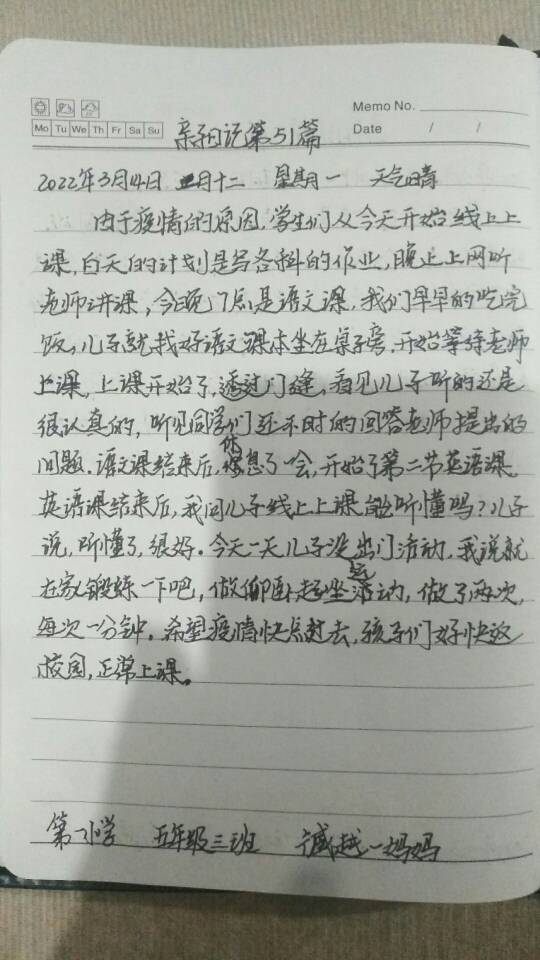 Memo No.
Mo Tu We Th Fr Sa Su
Date / /
亲子日记第51篇
2022年3月14日 二月十二 星期一 天气晴
由于疫情的原因,学生们从今天开始线上上
课,白天的计划是写各科的作业,晚上上网听
老师讲课,今晚7点是语文课,我们早早的吃完
饭,儿子就找好语文课本坐在桌子旁,开始等待老师
上课,上课开始了,透过门缝,看见儿子听的还是
很认真的,听见同学们还不时的回答老师提出的
问题。语文课结束后,休息了一会,开始了第二节英语课。
英语课结束后,我问儿子线上上课能听懂吗?儿子
说,听懂了,很好。今天一天儿子没出门活动,我说就
在家锻炼一下吧,做仰卧起坐运动,做了两次,
每次一分钟。希望疫情快点过去,孩子们好快返
校园,正常上课。
第一小学 五年级三班 越一妈妈